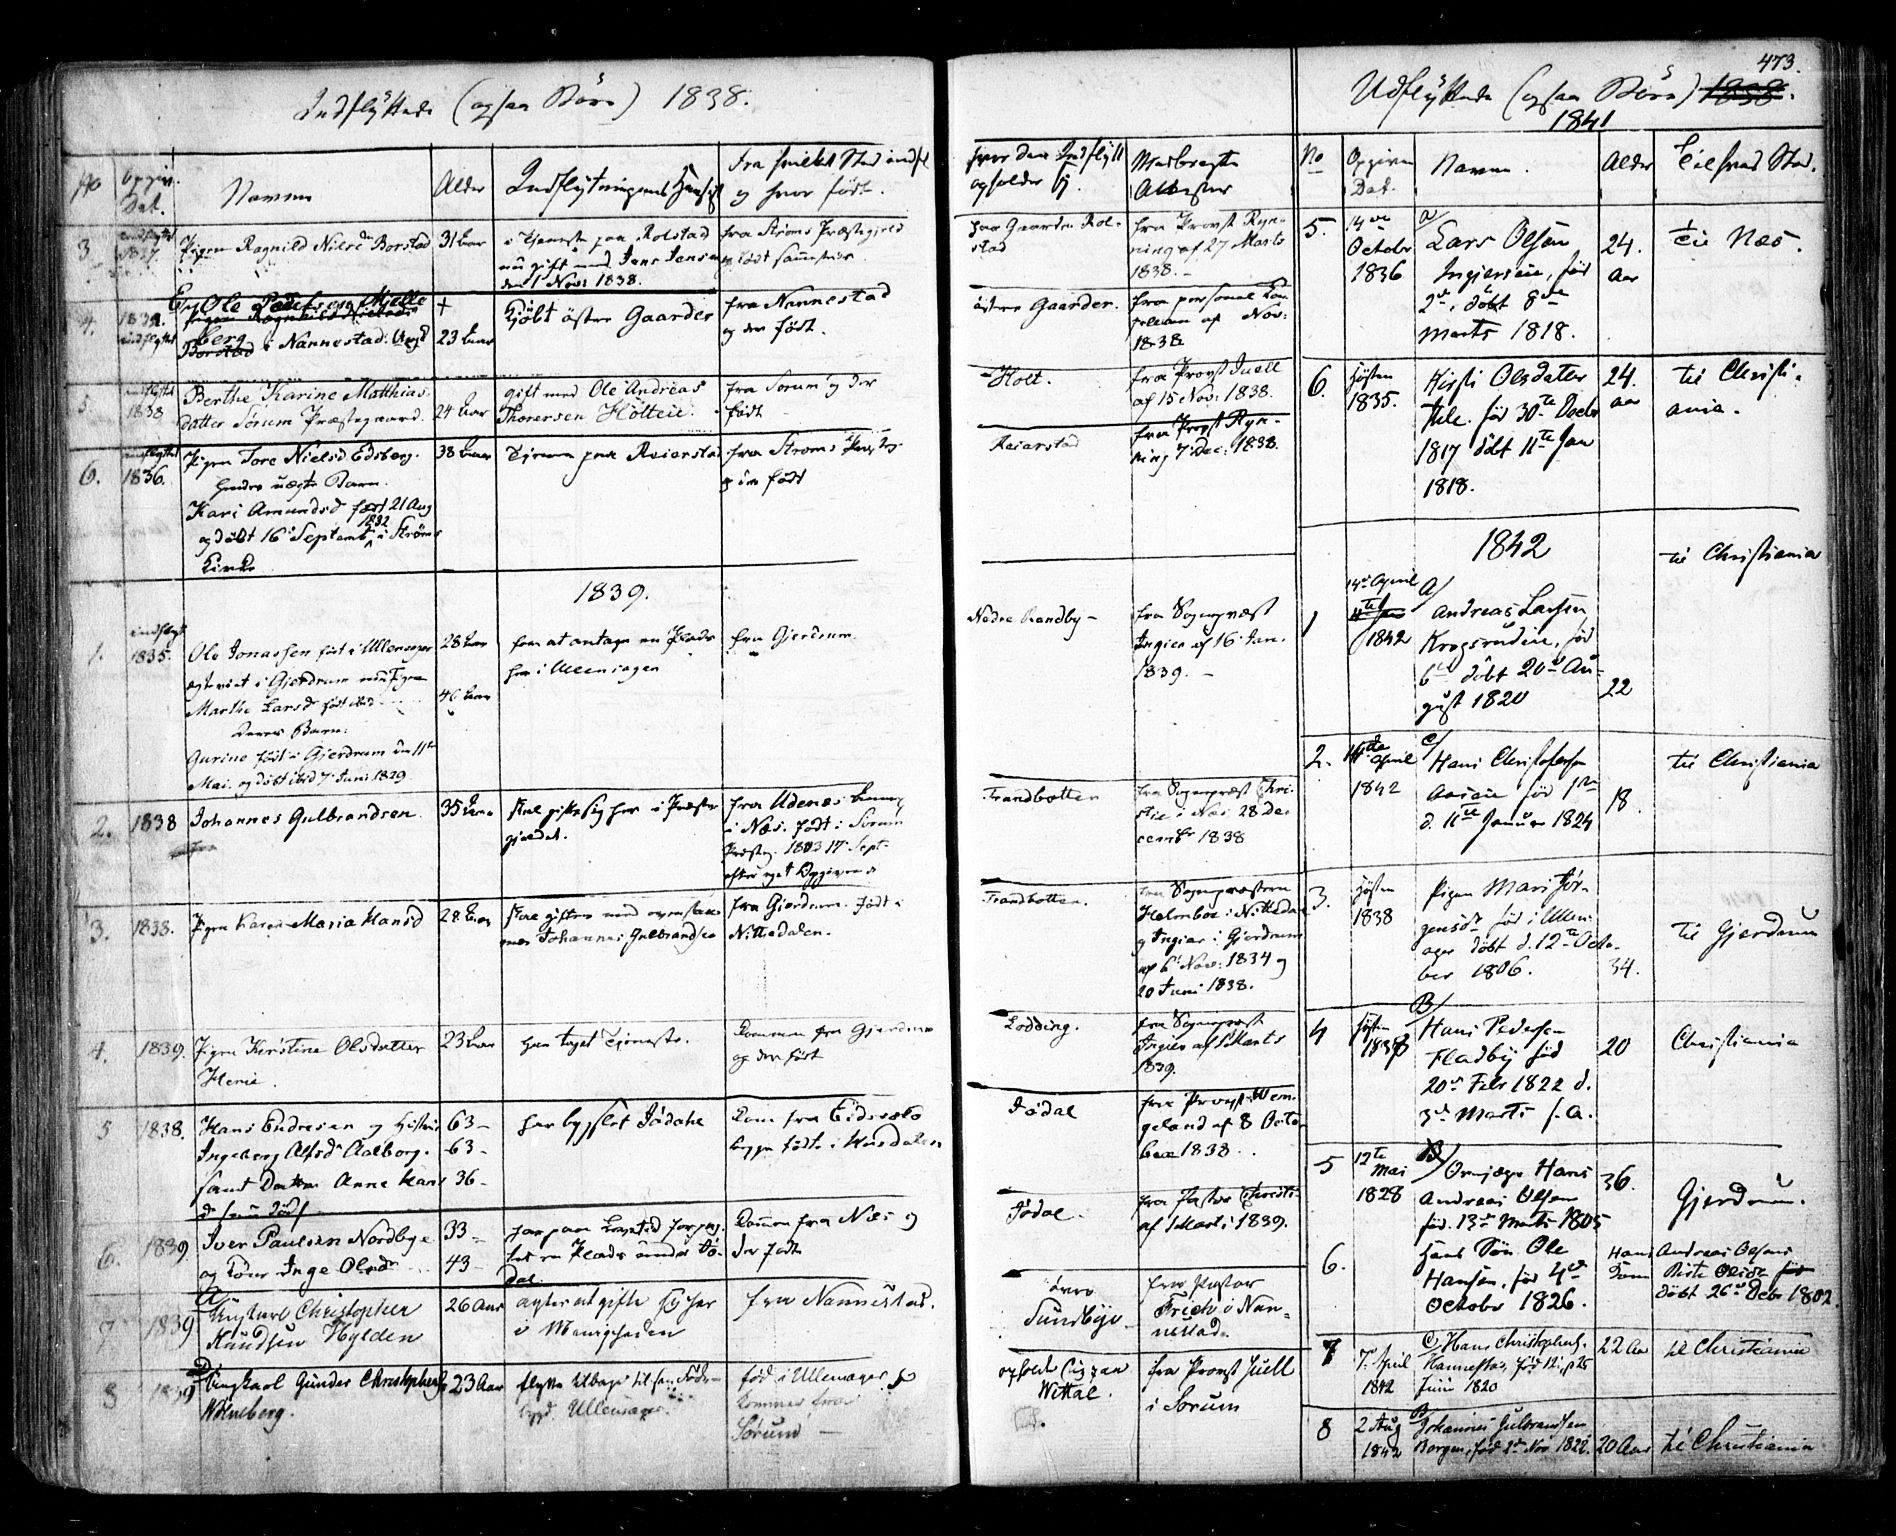 473.
Indflyttede (ogsaa Börn) 1838.
No
Opgiv. Dat.
Navne
Alder
Indflytningens Hensigt
fra hvilket Sted indfl
og hvor født.
hvor den Indflytt
opholder sig.
Medbragte
Attester
3
indflyttet
1837
Pigen Ragnild Nielsd Borstad
31 Aar
i Tjeneste paa Rolstad
nu gift med Jens Jensen
den 1 Nov: 1838.
fra Ströms Præstegjeld
og født sammesteds
paa Gaarden Rol-
stad
fra Provst Ryn-
ning af 27 Marts
1838.-
4.
1838.
indflyttet
Ole
berg i Nannestad. Ungk
23 Aar
Kjöbt östre Gaarder
fra Nannestad
og der født.
östre Gaarder.
fra personel Ca-
pellan af Nov:
1838
5
indflyttet
1838
Berthe Karine Matthias
datter Sørum Præstegaard.
24 Aar
gift med Ole Andreas
Thoresen Hölteie.
fra Sorum og der
født
Holt.
fra Provst Juell
af 15 Nov: 1838.
6.
indflyttet
1836.
Pigen Tore Nielsd Edsberg.
hendes uægte Barn
Kari Amundsd født 21 Aug
1832
og døbt 16 Septemb i Ströms
Kirke
38 Aar
Tjener paa Reierstad
fra Ströms Præstegj
og der født
Reierstad
fra Provst Ryn-
ning 7 Dec: 1838.
1839.
1.
indflytt
1835.
Ole Jonassen født i Ullensager
ægteviet i Gjerdrum med Pigen
Marthe Larsd født ibid
Deres Barn:
Gurine født i Gjerdrum den 11te
Mai og døbt ibid 7 Juni 1829
28 Aar
40 Aar
for at antage en Plads
her i Ullensager
fra Gjerdrum
Nedre Randby-
fra Sognepræst
Ingier af 16 Jan.
1839.-
2.
1838
Johannes Gulbrandsen
35 Aar
skal gifte sig her i Præste
gjeldet.
fra Udenes Annex
i Næs. født i Sorum
Præsteg. 1803 17 Sept.
efter eget Opgivende
Trandbotten
fra Sognepræst Chri-
stie i Næs 28 De-
cembr 1838
3.
1838.
Pigen Karen Maria Hansd
28 Aar
skal giftes med ovenstaa
ende Johannes Gulbrandsen
fra Gjerdrum. født i
Nittedalen.
Trandbotten.
fra Sognepræsterne
Holmboe i Nittedal
og Ingier i Gjerdrum
af 6 Nov: 1834 og
20 Juni 1838.
4.
1839.
Pigen Kirstine Olsdatter
23 Aar
har taget Tjeneste.
kommen fra Gjerdrum
og der født
Lodding.
fra Sognepræst
Ingier af Marts
1839.
5
1838.
Hans Endresen og Hustru
Ingeborg Alfsdr Aalborg.
samt Datter Anne Hans
63-
63-
36-
har bygslet Jödahl
kom fra Eidsvold
begge födte i Hurdalen
Jödal
fra Provst Wer-
geland af 8 Octo
ber 1838.
6.
1839
Iver Paulsen Nordbye
og Kone Inge Olsdr
33-
43-
har paa Livstid forpag
tet en Plads under Jö-
dal
kommen fra Næs og
der født
Jödal.
fra Pastor Christie
af Marts 1839.
7
1839
Ungkarl Christopher
Knudsen Hylden
26 Aar
agter at gifte sig her
i Menigheden
fra Nannestad.
övre
Sundbye
fra Pastor
Frich i Nan-
nestad.
8
1839
Ungkarl Gunder Christophers
Wolneberg.
23 Aar
flytter tilbage til sin Föde-
bygd Ullensager.
fød i Ullensager og
kommer fra
Sørum
opholder sig paa
Wittal.
fra Provst Juell
i Sorum
Udflyttede (ogsaa Börn) 1838.
1841
No
Opgiven
Dat.
Navne.
Alder
Til hvad Sted.
5.
14de
Octobr
1836
a/
Lars Olsen
Ingierseie, fød
2de, döbt 8de
Marts 1818.
24.
aar
til Næs.
6.
Hösten
1835.
Kirsti Olsdatter
fød 30te Decbr
1817 döbt 11te Jan
1818.
24.
aar
til Christi-
ania.
1842
1
14de April
1842
A/
Andreas Larsen
Krogsrudeie, fød
6te döbt 20de Au-
gust 1820
22
til Christiania
2.
14de
April
1842
C/
Hans Christophersen
Aaseie fød 1ste
d. 11te Januar 1824
18.
til Christiania
3.
Hösten
1838
Pigen Mari Jör-
gensdr fød i Ullen-
ager döbt d. 12te Octo-
ber 1806.
34.
til Gjerdrum
4
Hösten
1838
B/
Hans Pedersen
Fladby fød
20de Febr 1822 d.
3de Marts s. A.
20
Christiania
5
12te
Mai
1828
B/
Hans
Andreas Olsen
fød. 13de Marts 1805
36.
Gjerdrum.
6.
Hans Sön Ole
Hansen, fød 4de
October 1826.
Hans Andreas Olsens
Kone
döbt 26de Decbr 1802.
7
7. April
1842
C/ Hans Christophers.
fød 12
Juni 1820
22 Aar
til Christiania
8
2 Aug
1842
B
Johannes Gulbrandsen
Borgen, fød 2de Nov 1822.
20 Aar
til Christiania